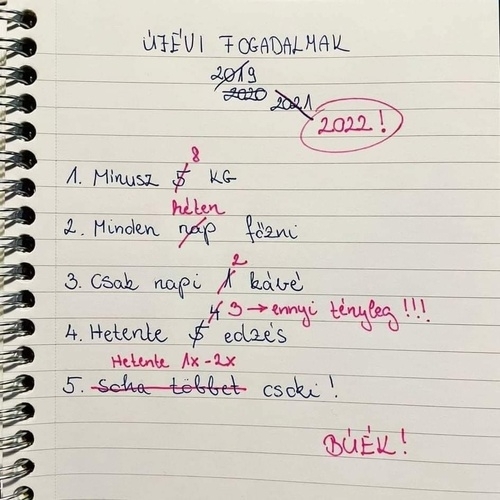 ÚJÉVI FOGADALMAK
2019
2020
2021
2022!
8
1. Minusz 5 KG
héten
2. Minden nap főzni
2
3. Csak napi 1 kávé
4 3 → ennyi tényleg!!!
4. Hetente 5 edzés
Hetente 1x-2x
5. soha többet csoki!
BÚÉK!